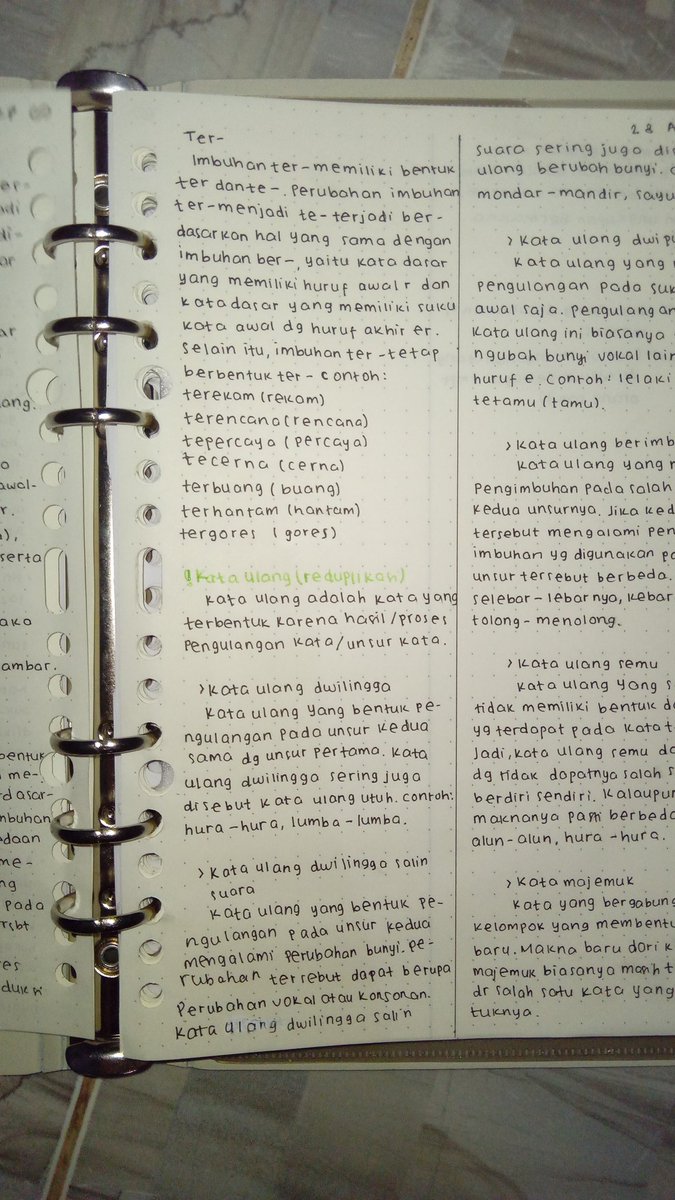 Ter-
Imbuhan ter-memiliki bentuk
ter dan te-. Perubahan imbuhan
ter-menjadi te-terjadi ber-
dasarkan hal yang sama dengan
imbuhan ber-, yaitu kata dasar
yang memiliki huruf awal r dan
kata dasar yang memiliki suku
kata awal dg huruf akhir er.
Selain itu, imbuhan ter-tetap
berbentuk ter- contoh:
terekam (rekam)
terencana (rencana)
tepercaya (percaya)
tecerna (cerna)
terbuang (buang)
terhantam (hantam)
tergores (gores)
! Kata ulang (reduplikah)
Kata ulang adalah kata yang
terbentuk karena hasil/proses
pengulangan kata/unsur kata.
> Kata ulang dwilingga
Kata ulang yang bentuk pe-
ngulangan pada unsur kedua
sama dg unsur pertama. Kata
ulang dwilingga sering juga
disebut kata ulang utuh. contoh:
hura-hura, lumba-lumba.
> Kata ulang dwilingga salin
suara
Kata ulang yang bentuk pe-
ngulangan pada unsur kedua
mengalami perubahan bunyi. pe-
rubahan tersebut dapat berupa
perubahan vokal atau konsonan.
Kata ulang dwilingga salin
28 A
suara sering juga di
ulang berubah bunyi.
mondar-mandir, sayu
> Kata ulang dwipu
Kata ulang yang
pengulangan pada suk
awal saja. pengulangan
Kata ulang ini biasanya
ngubah bunyi vokal lain
huruf e. Contoh: lelaki
tetamu (tamu).
> Kata ulang berimb
Kata ulang yang
Pengimbuhan pada salah
kedua unsurnya. Jika ked
tersebut mengalami pen
imbuhan yg digunakan pa
unsur tersebut berbeda.
selebar-lebarnya, kebar
tolong-menolong.
> Kata ulang semu
Kata ulang yang s
tidak memiliki bentuk da
yg terdapat pada kata t
Jadi, kata ulang semu da
dg tidak dapatnya salah s
berdiri sendiri. Kalaupun
maknanya pasti berbeda
alun-alun, hura-hura.
> Kata majemuk
Kata yang bergabung
kelompok yang membentu
baru. Makna baru dari k
majemuk biasanya masih t
dr salah satu kata yang
tuknya.